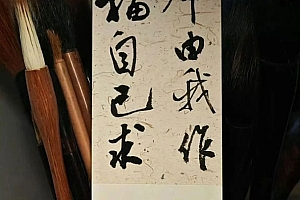 由我作
福自己求